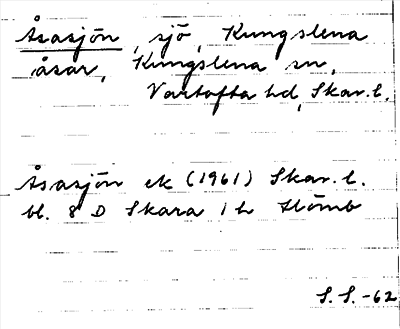 Åsasjön, sjö, Kungslena
åsar, Kungslena sn,
Vartofta hd, Skar. l.
Åsasjön ek (1961) Skar. l.
bl. 8 D Skara 1 h Stömb
S. S. -62